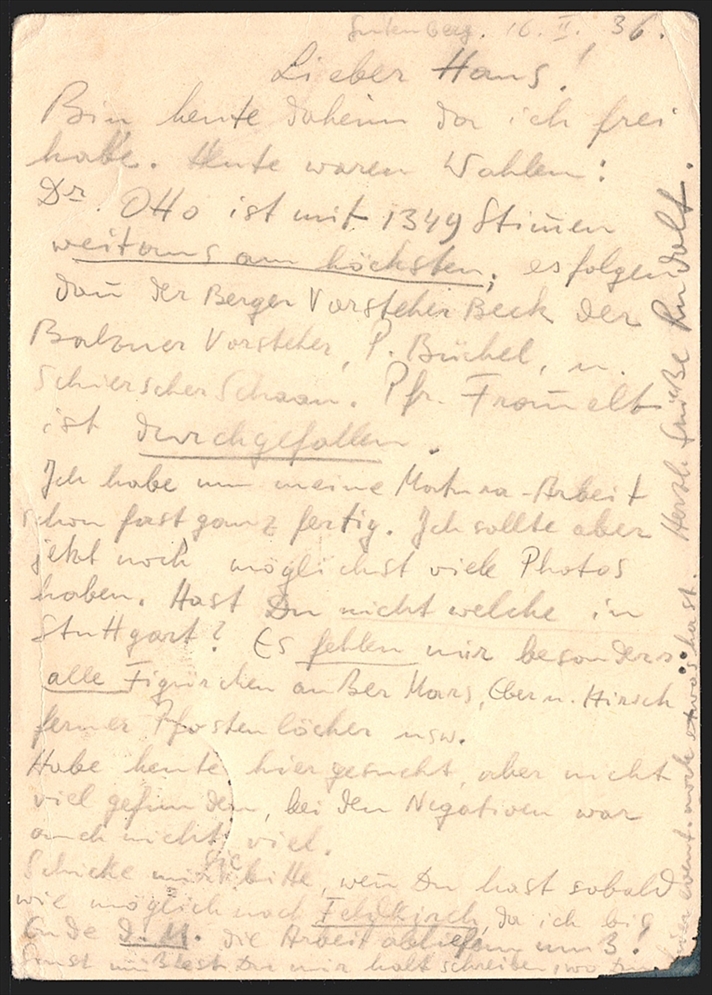 Gutenberg. 16. II. 36.
Lieber Hans!
Bin heute daheim da ich frei
habe. Heute waren Wahlen:
Dr. Otto ist mit 1349 Stim̄en
weitaus am höchsten; es folgen
dan̄ der Berger Vorsteher Beck der
Balzner Vorsteher, P. Büchel, u.
Schierscher Schaan. Pfr. From̄elt
ist durchgefallen.
Ich habe nun meine Matura-Arbeit
schon fast ganz fertig. Ich sollte aber
jetzt noch möglichst viele Photos
haben. Hast Du nicht welche in
Stuttgart? Es fehlen mir besonders:
alle Figürchen außer Mars, Eber u. Hirsch
ferner Pfostenlöcher usw.
Habe heute hier gesucht, aber nicht
viel gefunden, bei den Negativen war
auch nicht viel.
Schicke mir sie bitte, wen̄ Du hast sobald
wie möglich nach Feldkirch, da ich bis
Ende d. M. die Arbeit abliefern muß!
Sonst müßtest Du mir halt schreiben, wo Du
hier event. noch etwas hast. Herzl. Grüße Rudolf.